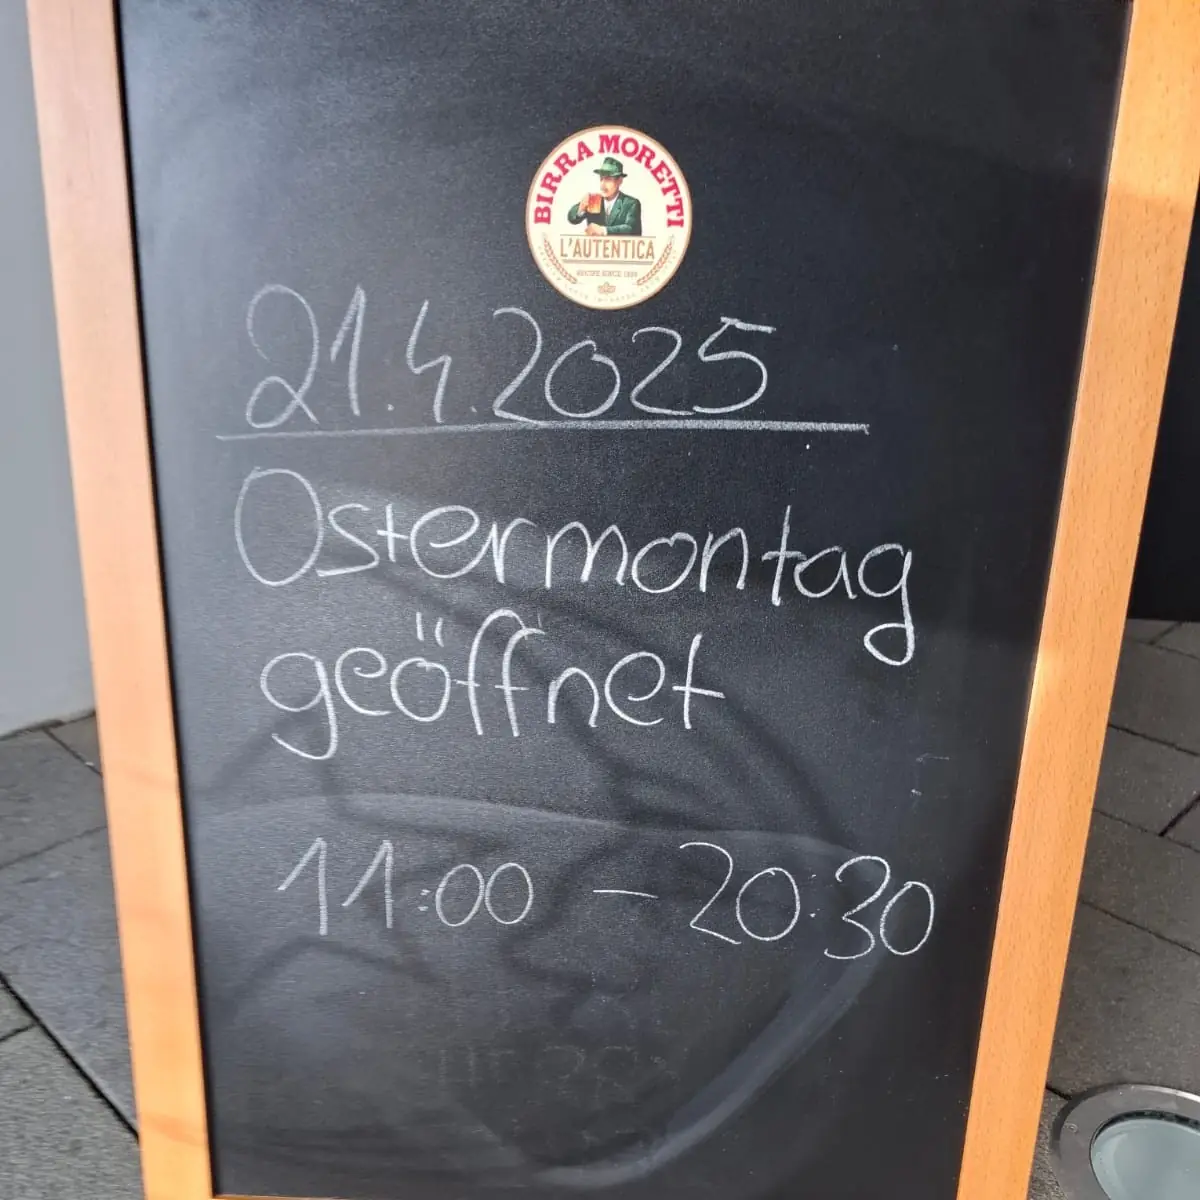 BIRRA MORETTI
L'AUTENTICA
RECIPE SINCE 1859
21.4.2025
Ostermontag
geöffnet
11:00 – 20:30